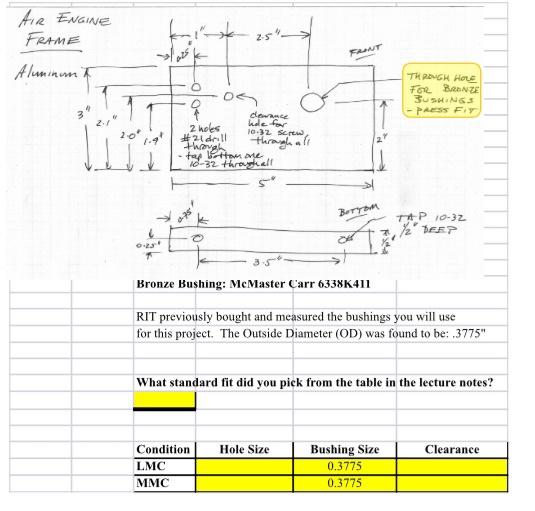 AIR ENGINE
FRAME
Aluminum
1"
2.5"
FRONT
THROUGH HOLE
FOR BRONZE
BUSHINGS
- PRESS FIT
3"
2.1"
2.0"
1.9"
2 holes
#21 drill
through
- tap bottom one
10-32 through all
clearance
hole for
10-32 screw
through all
2"
5"
BOTTOM
TAP 10-32
1/2" DEEP
0.25"
1/2"
3.5"
Bronze Bushing: McMaster Carr 6338K411
RIT previously bought and measured the bushings you will use
for this project. The Outside Diameter (OD) was found to be: .3775"
What standard fit did you pick from the table in the lecture notes?
Condition Hole Size Bushing Size Clearance
LMC 0.3775
MMC 0.3775